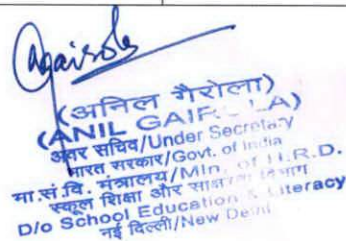 (अनिल गैरोला)
(ANIL GAIROLA)
अवर सचिव/Under Secretary
भारत सरकार/Govt. of India
मा.सं.वि. मंत्रालय/Min. of H.R.D.
स्कूल शिक्षा और साक्षरता विभाग
D/o School Education & Literacy
नई दिल्ली/New Delhi